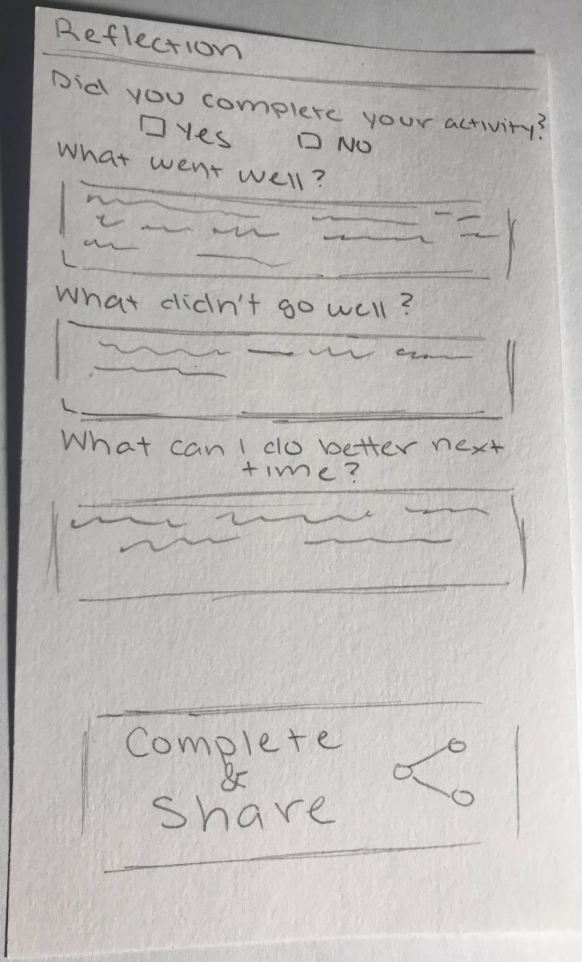 Reflection
Did you complete your activity?
Yes No
What went well?
What didn't go well?
What can I do better next
time?
Complete
&
Share